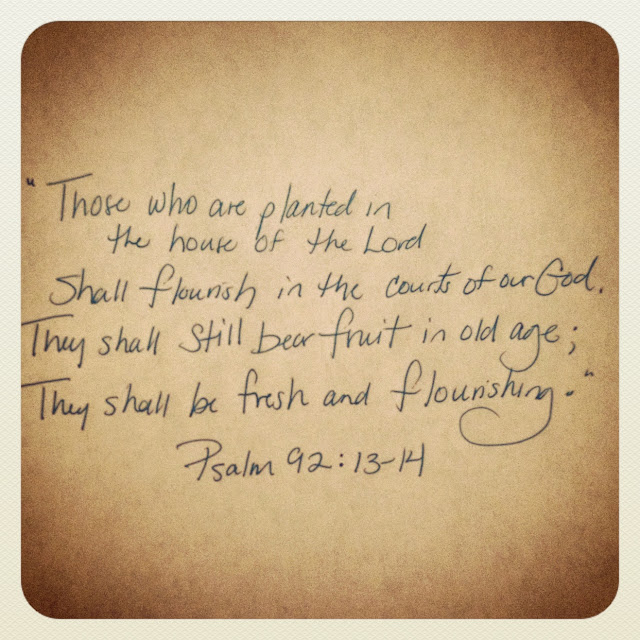 "Those who are planted in
the house of the Lord
Shall flourish in the courts of our God.
They shall still bear fruit in old age;
They shall be fresh and flourishing."
Psalm 92:13-14